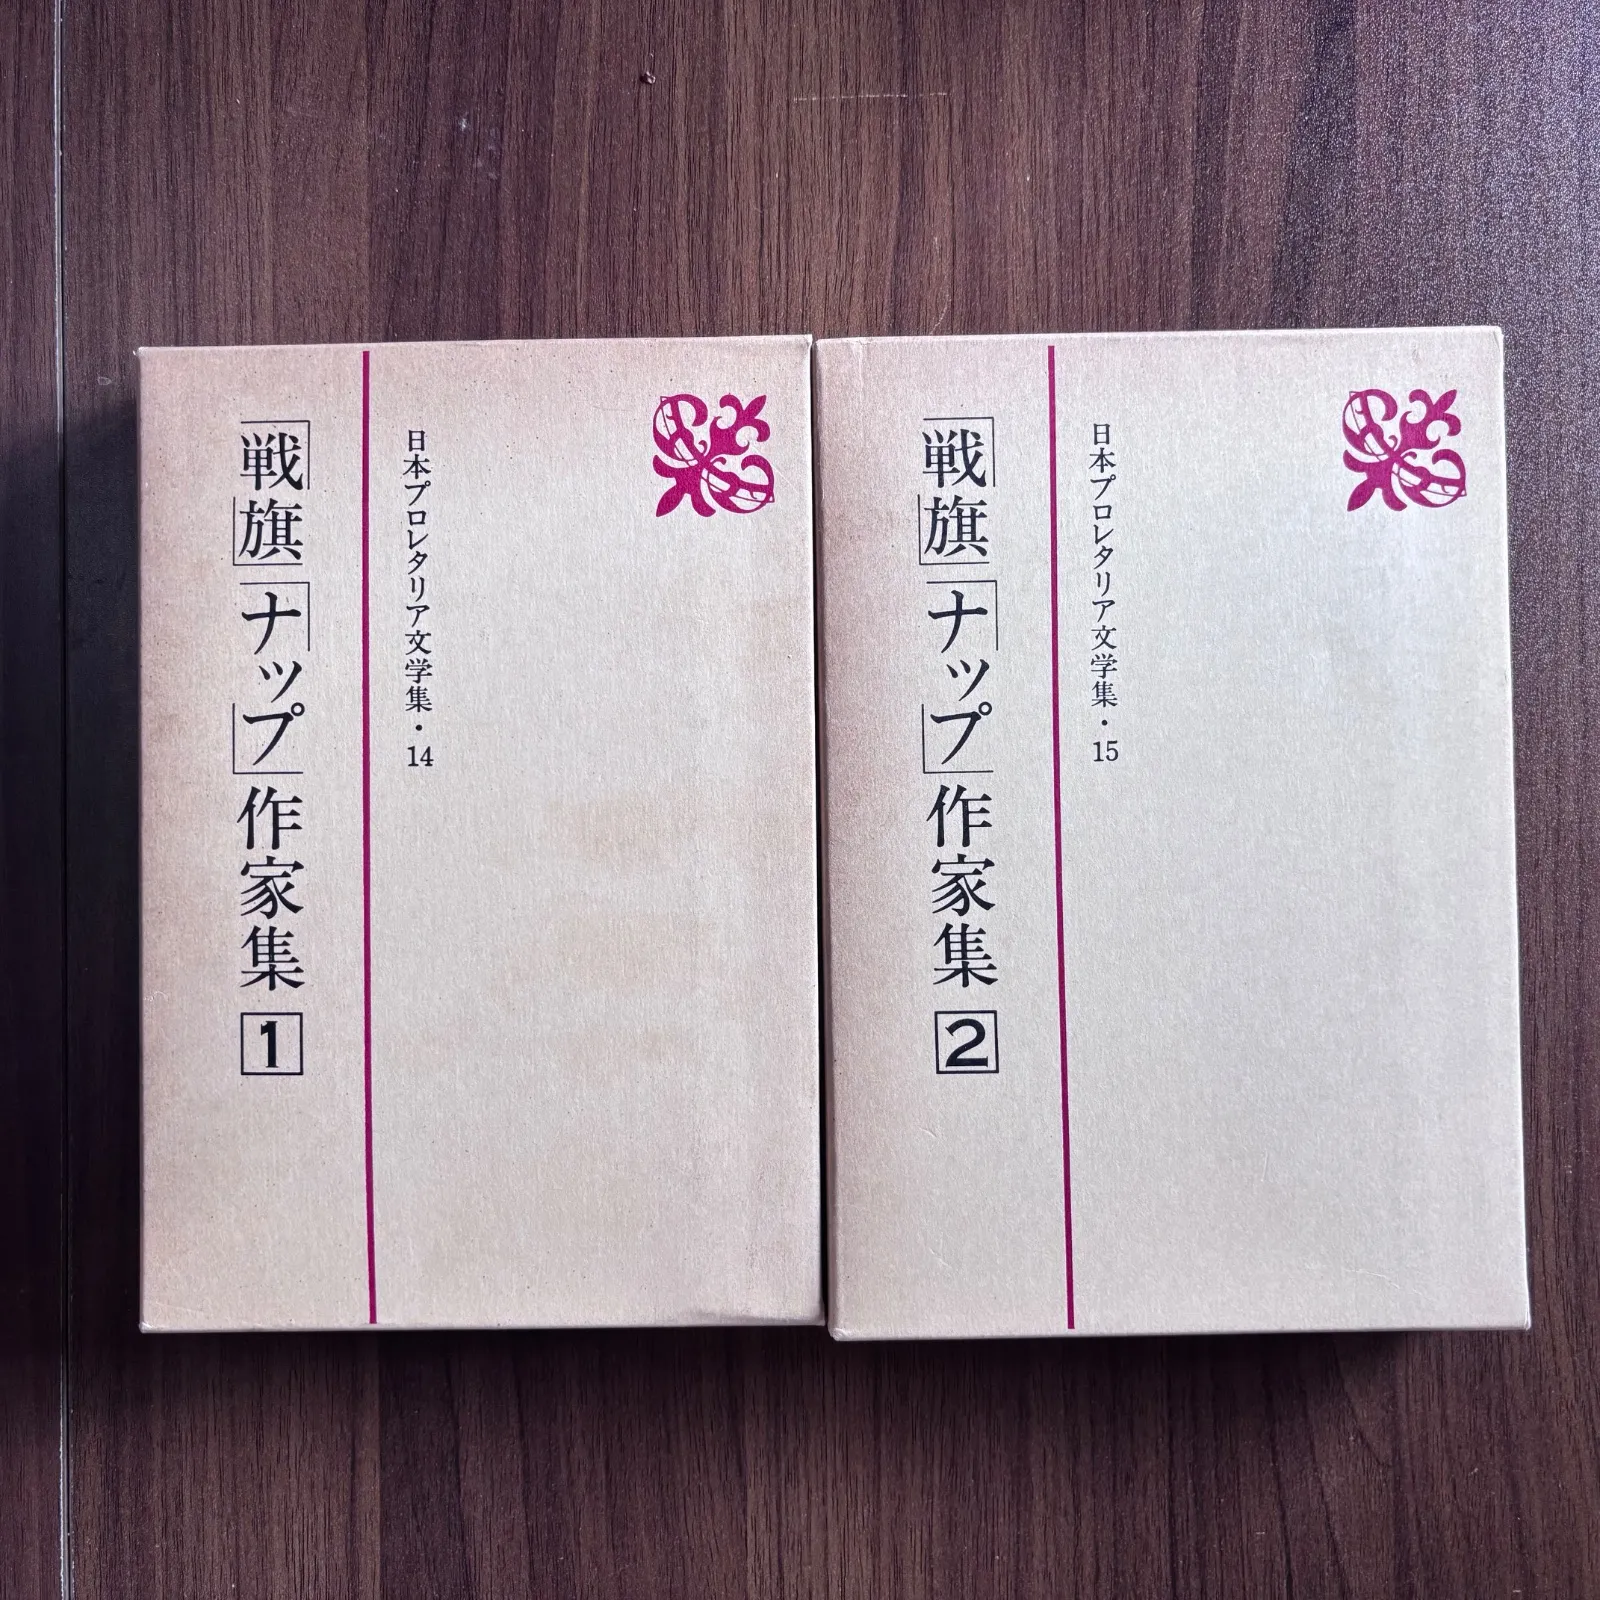 日本プロレタリア文学集・14
「戦旗」「ナップ」作家集1
日本プロレタリア文学集・15
「戦旗」「ナップ」作家集2